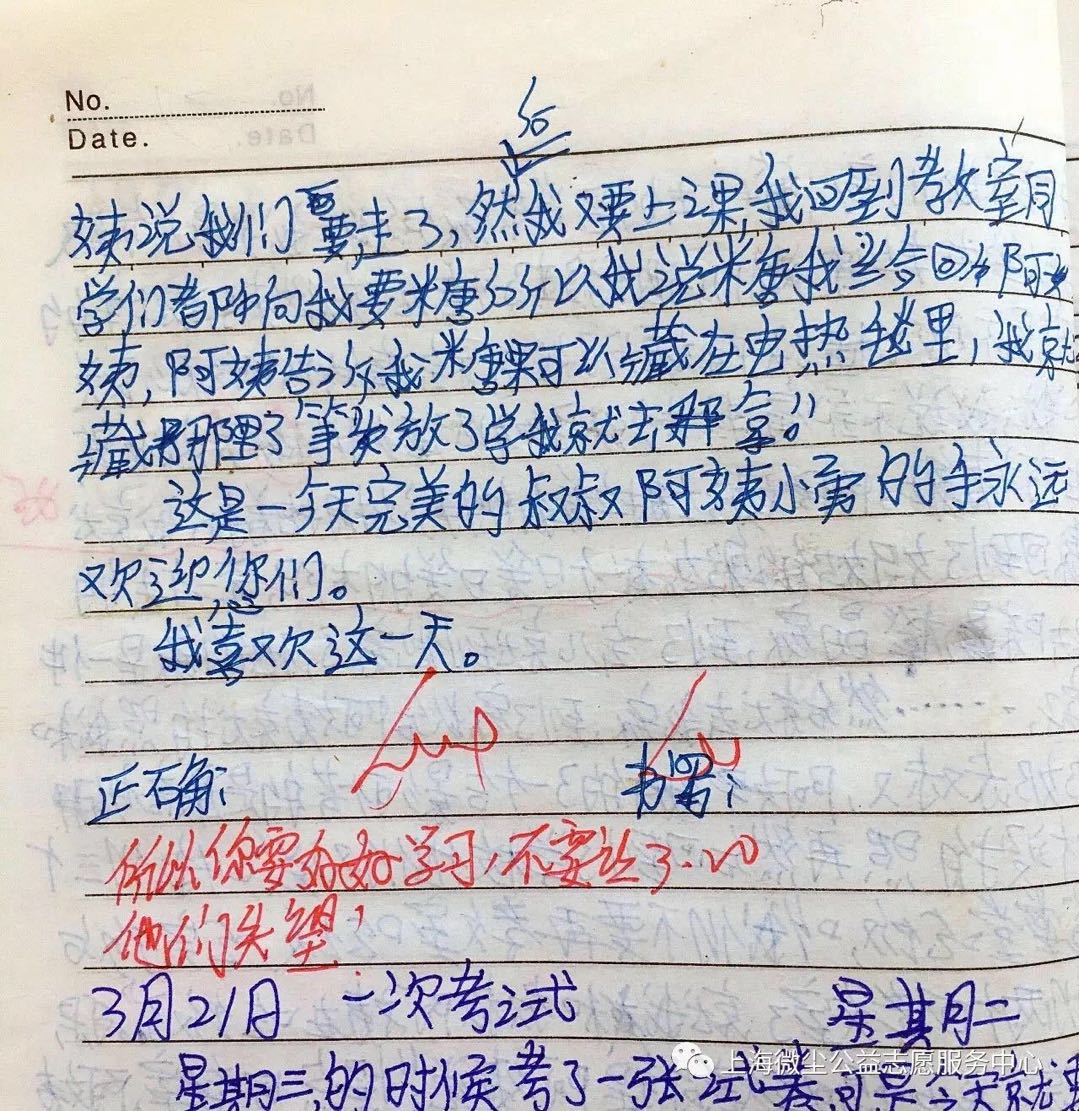 No.
Date.
后
姨说我们要走了,然我又要上课,我回到教室同
学们都向我要米唐,所以我说米唐我当会回阿
姨,阿姨告诉我米唐果可以藏在电热毯里,我就
藏那里了等我放了学我就去那拿!!
这是一今天完美的叔叔阿姨小勇的手永远
欢迎你们。
我喜欢这一天。
正确: 书写:
所以你要好好学习,不要让
他们失望!
3月21日 一次考试 星其月二
星期三的时候考了一张试卷可是今天就
上海微尘公益志愿服务中心